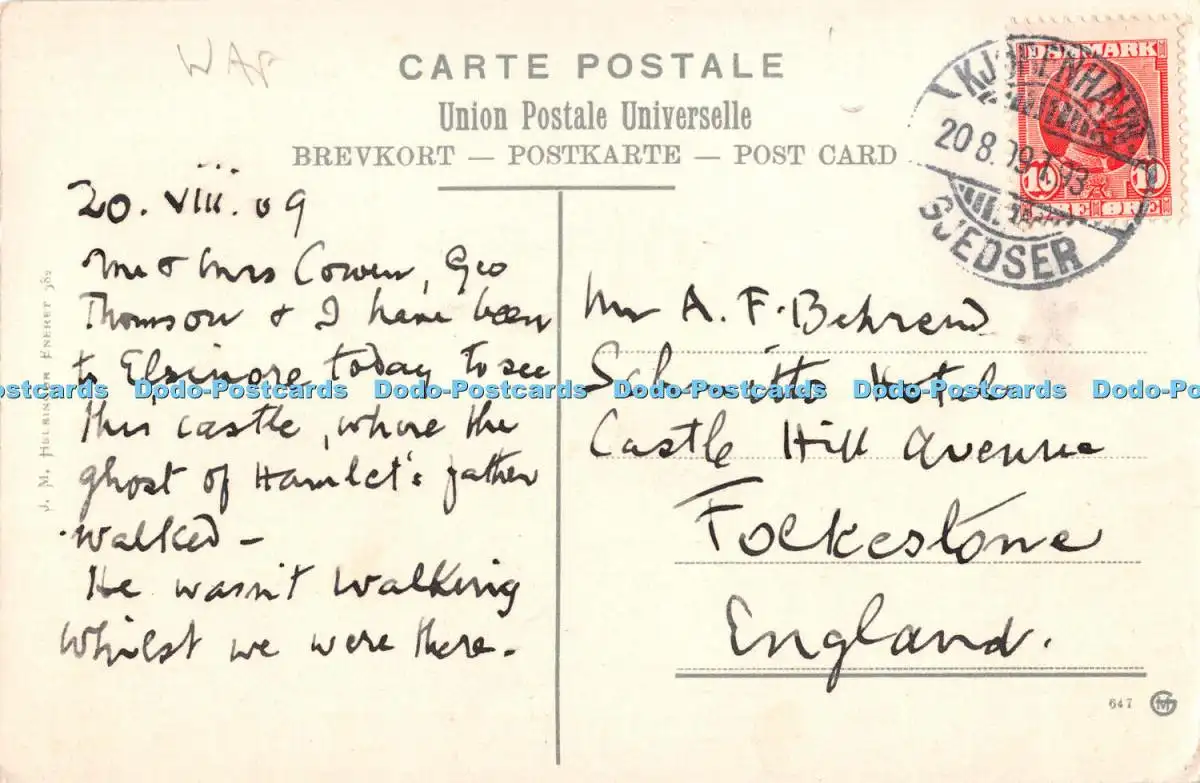 WAF
CARTE POSTALE
Union Postale Universelle
BREVKORT — POSTKARTE — POST CARD
DANMARK
10 10
ØRE ØRE
KJØBENHAVN
20 8. 09
GJEDSER
20. VIII. 09
Mr & Mrs Cowen, Geo
Thomson & I have been
to Elsinore today to see
this castle, where the
ghost of Hamlet's father
walked —
He wasn't walking
whilst we were there.
Mr A. F. Behrend
Hotel
Castle Hill Avenue
Folkestone
England.
J. M. HELSINGØR ENERET 382
Dodo-Postcards Dodo-Postcards Dodo-Postcards Dodo-Postcards Dodo-Postcards
647